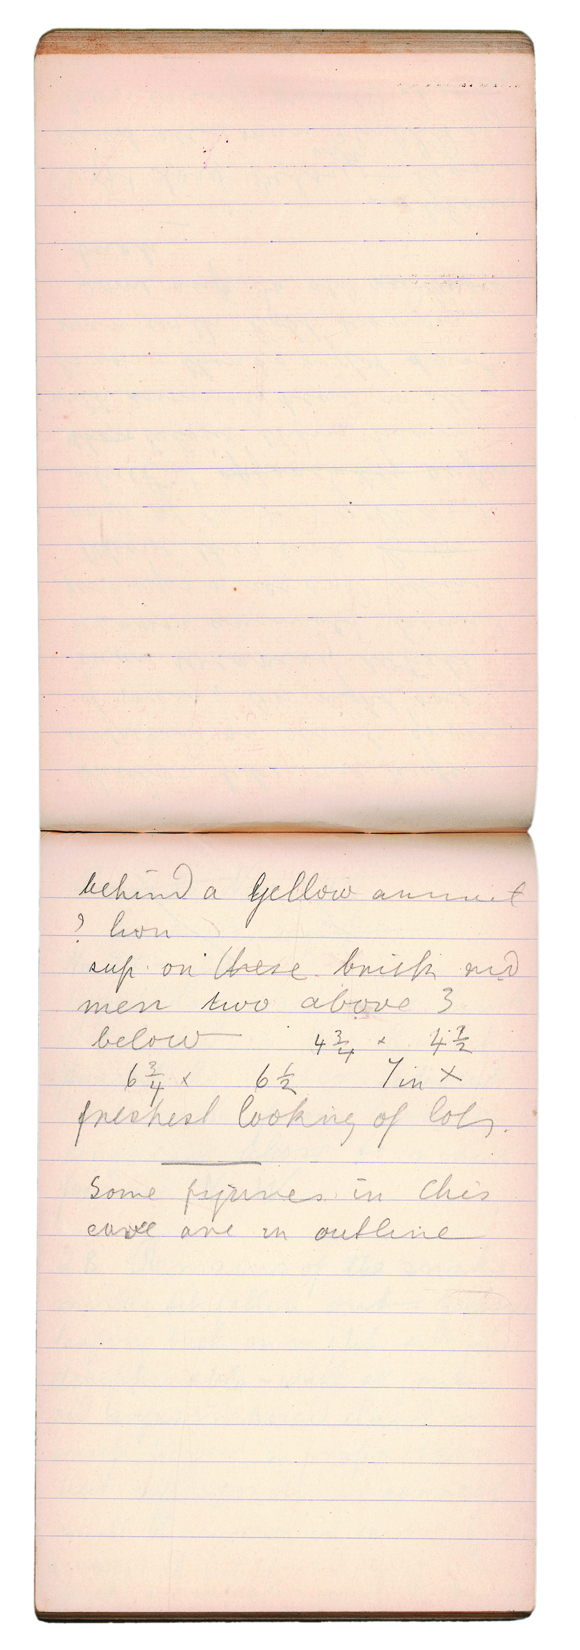 behind a yellow animal
? lion
sup. on these brick red
men two above 3
below 4 3/4 x 4 1/2
6 3/4 x 6 1/2 7 in X
freshest looking of lot.
Some figures in this
cave are in outline